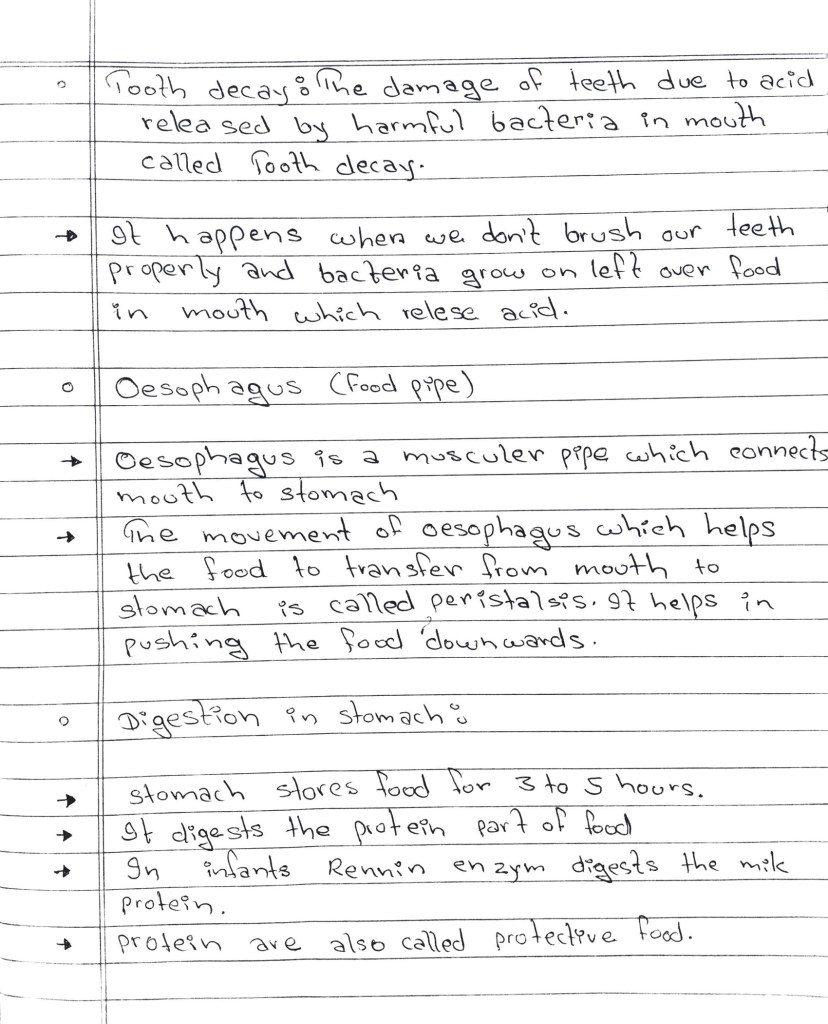 ○ Tooth decay : The damage of teeth due to acid
released by harmful bacteria in mouth
called Tooth decay.
→ It happens when we don't brush our teeth
properly and bacteria grow on left over food
in mouth which relese acid.
○ Oesophagus (Food pipe)
→ Oesophagus is a musculer pipe which connects
mouth to stomach
→ The movement of oesophagus which helps
the food to transfer from mouth to
stomach is called peristalsis. It helps in
pushing the food downwards.
○ Digestion in stomach :
→ stomach stores food for 3 to 5 hours.
→ It digests the protein part of food
→ In infants Rennin enzym digests the milk
protein.
→ protein are also called protective food.